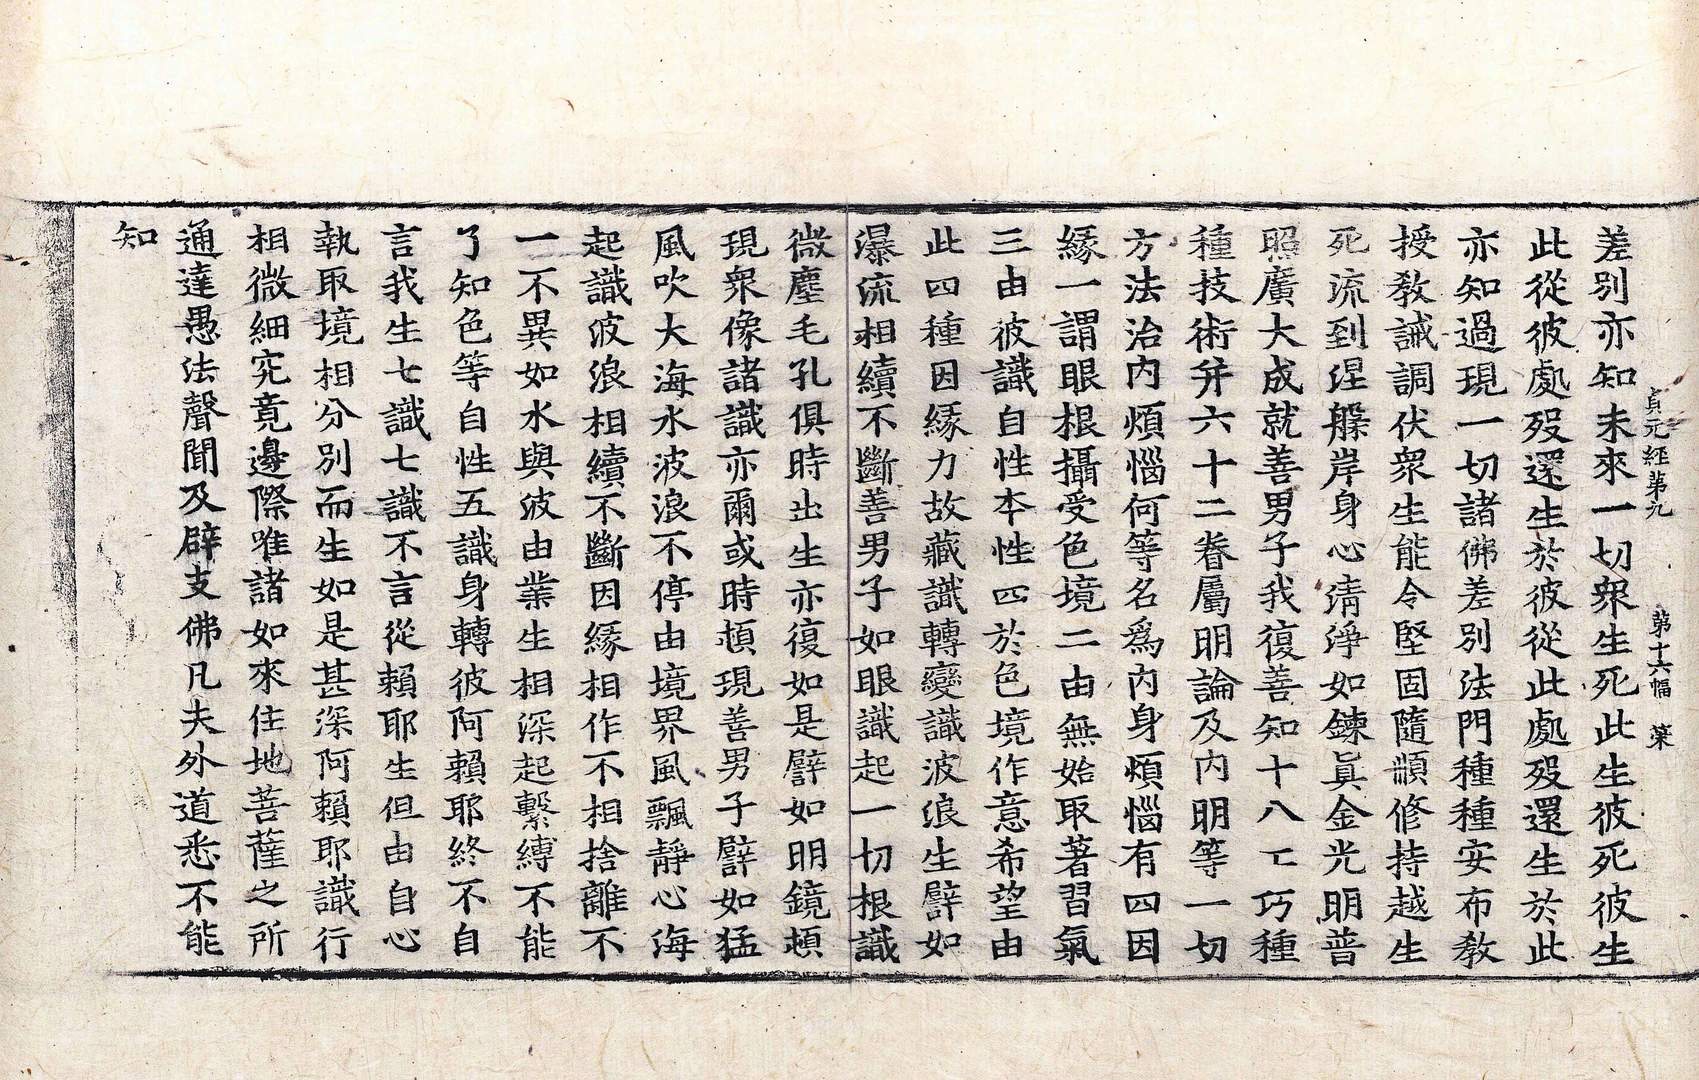 貞元經第九 第十六幅 業
差別亦知未來一切衆生死此生彼死彼生
此從彼處歿還生於彼從此處歿還生於此
亦知過現一切諸佛差別法門種種安布教
授教誡調伏衆生能令堅固隨順修持越生
死流到涅槃岸身心清淨如鍊眞金光明普
照廣大成就善男子我復善知十八工巧種
種技術并六十二眷屬明論及內明等一切
方法治內煩惱何等名爲內身煩惱有四因
緣一謂眼根攝受色境二由無始取著習氣
三由彼識自性本性四於色境作意希望由
此四種因緣力故藏識轉變識波浪生譬如
瀑流相續不斷善男子如眼識起一切根識
微塵毛孔俱時出生亦復如是譬如明鏡頓
現衆像諸識亦爾或時頓現善男子譬如猛
風吹大海水波浪不停由境界風飄靜心海
起識波浪相續不斷因緣相作不相捨離不
一不異如水與波由業生相深起繫縛不能
了知色等自性五識身轉彼阿賴耶終不自
言我生七識七識不言從賴耶生但由自心
執取境相分別而生如是甚深阿賴耶識行
相微細究竟邊際唯諸如來住地菩薩之所
通達愚法聲聞及辟支佛凡夫外道悉不能
知